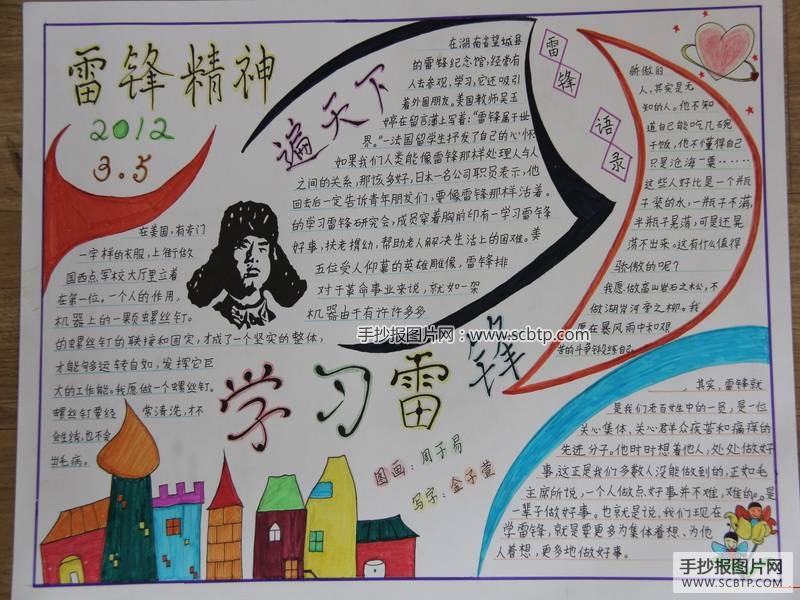 雷锋精神
2012
3.5
遍天下
在湖南省望城县
的雷锋纪念馆,经常有
人去参观,学习,它还吸引
着外国朋友。美国教师吴玉
婷在留言簿上写着:“雷锋属于世
界。”一法国留学生抒发了自己的心怀
如果我们人类能像雷锋那样处理人与人
之间的关系,那该多好,日本一名公司职员表示,他
回去后一定告诉青年朋友们,要像雷锋那样活着。
的学习雷锋研究会,成员穿着胸前印有一学习雷锋
好事,扶老携幼,帮助老人解决生活上的困难。美
五位受人仰慕的英雄雕像,雷锋排
对于革命事业来说,就如一架
机器由于有许许多多
在美国,有专门
一字样的衣服,上街做
国西点军校大厅里立着
在第一位。一个人的作用,
机器上的一颗螺丝钉。
的螺丝钉的联接和固定,才成了一个坚实的整体,
才能够运转自如,发挥它巨
大的工作能。我愿做一个螺丝钉。
螺丝钉要经常清洗,才不
会生锈,也不会
出毛病。
雷锋
语录
骄傲的
人,其实是无
知的人。他不知
道自己能吃几碗
干饭,他不懂得自己
只是沧海一粟……
这些人好比是一个瓶
子装的水,一瓶子不满,
半瓶子晃荡,可是还晃
荡不出来。这有什么值得
骄傲的呢?
我愿做高山岩石之松,不
做湖岸河旁之柳。我
愿在暴风雨中和艰
苦的斗争中锻炼自己
手抄报图片网:www.scbtp.com
学习雷锋
图画:周于易
写字:金子萱
其实,雷锋就
是我们老百姓中的一员,是一位
关心集体、关心群众疾苦和痛痒的
先进分子。他时时想着他人,处处做好
事这正是我们多数人没能做到的,正如毛
主席所说,一个人做点好事并不难,难的是
一辈子做好事。也就是说,我们现在
学雷锋,就是要更多为集体着想、为他
人着想,更多地做好事。
手抄报图片网
WWW.SCBTP.COM